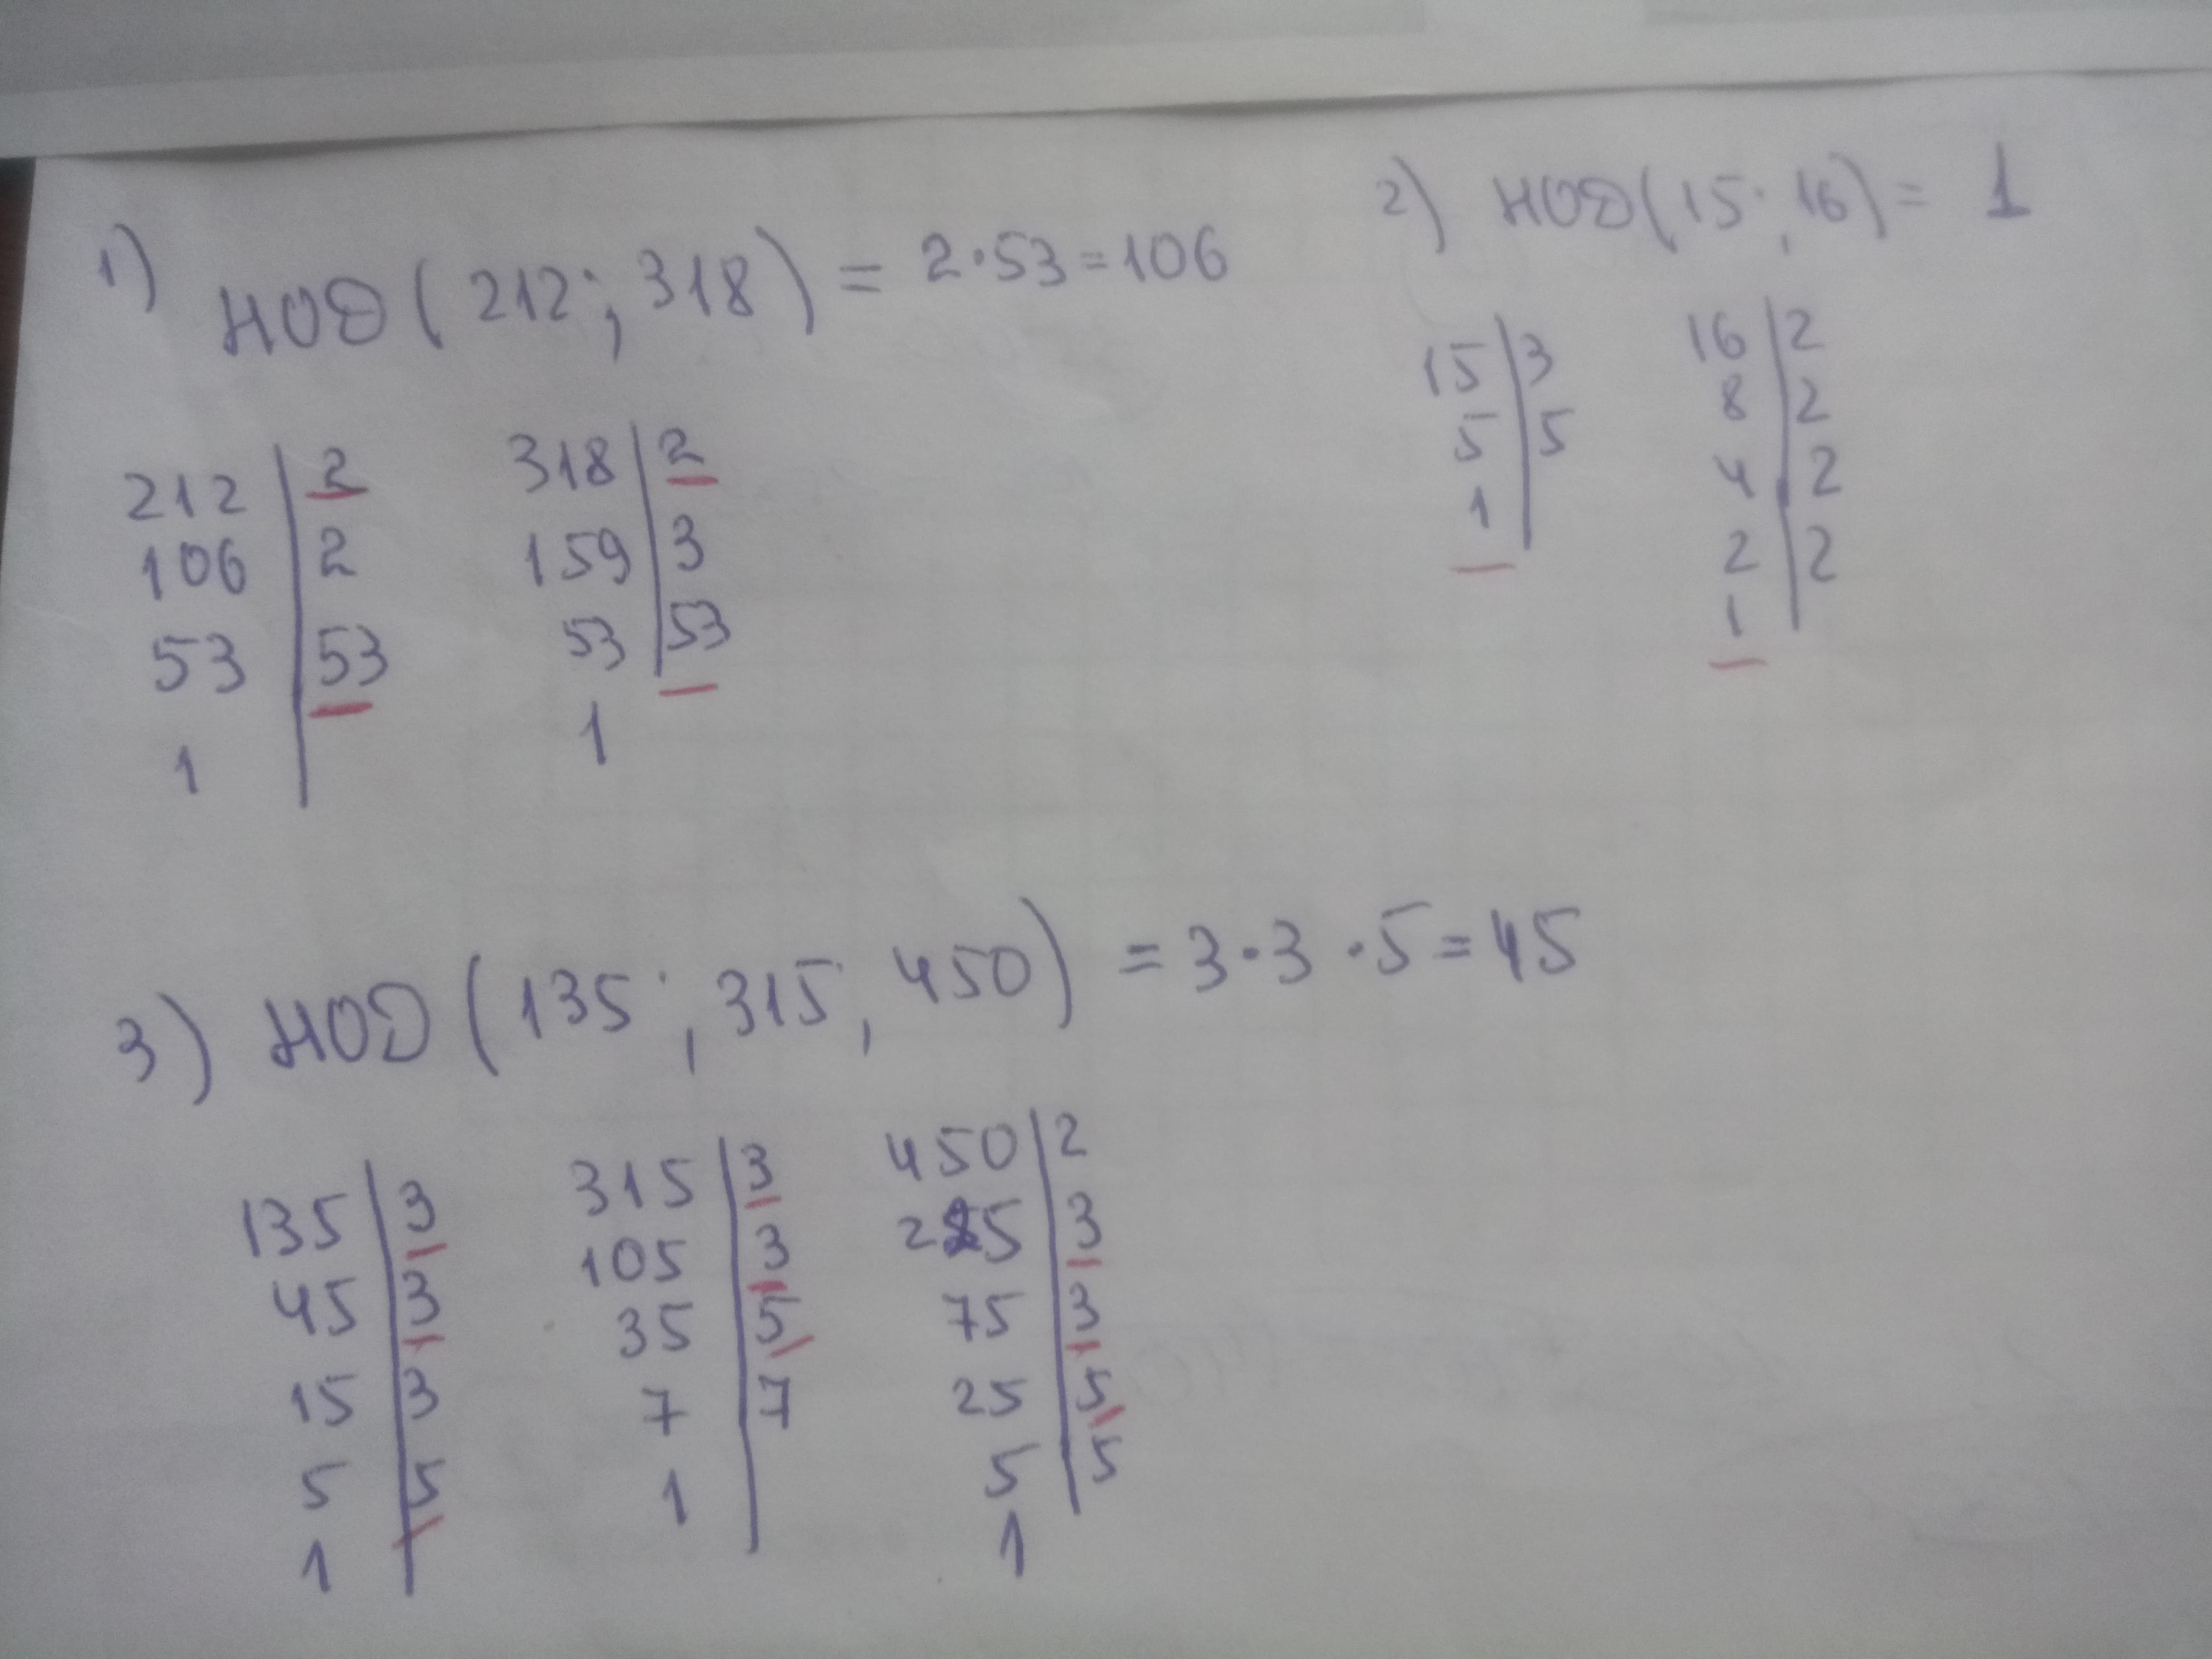 1) НОД (212; 318) = 2·53=106
212 | 2
106 | 2
53 | 53
1
318 | 2
159 | 3
53 | 53
1
2) НОД (15; 16) = 1
15 | 3
5 | 5
1
16 | 2
8 | 2
4 | 2
2 | 2
1
3) НОД (135; 315; 450) = 3·3·5=45
135 | 3
45 | 3
15 | 3
5 | 5
1
315 | 3
105 | 3
35 | 5
7 | 7
1
450 | 2
225 | 3
75 | 3
25 | 5
5 | 5
1